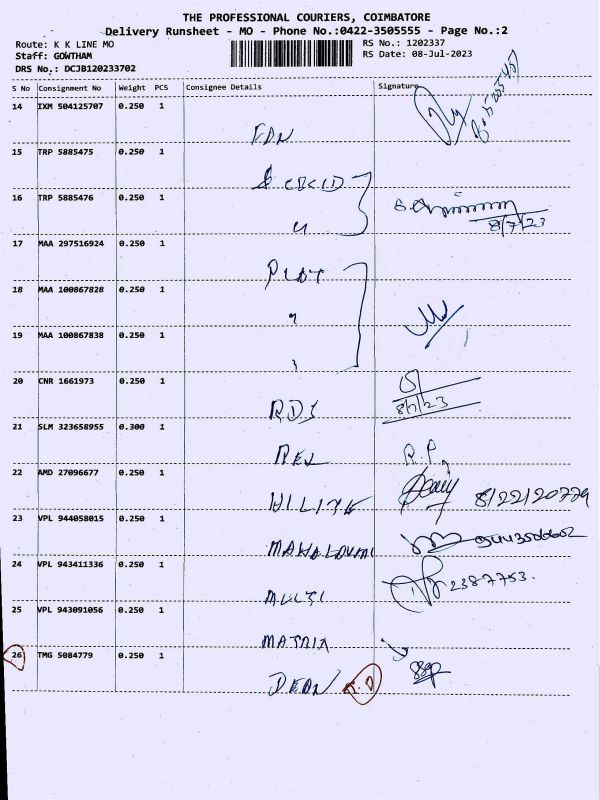 THE PROFESSIONAL COURIERS, COIMBATORE
Delivery Runsheet - MO - Phone No.:0422-3505555 - Page No.:2
Route: K K LINE MO RS No.: 1202337
Staff: GOWTHAM RS Date: 08-Jul-2023
DRS No.: DCJB120233702
S No Consignment No Weight PCS Consignee Details Signature
14 IXM 504125707 0.250 1
15 TRP 5885475 0.250 1
16 TRP 5885476 0.250 1
8/7/23
17 MAA 297516924 0.250 1
18 MAA 100867828 0.250 1
19 MAA 100867838 0.250 1
20 CNR 1661973 0.250 1
RDS 8/7/23
21 SLM 323658955 0.300 1
R.P
22 AMD 27096677 0.250 1
HILITE
23 VPL 944058015 0.250 1
24 VPL 943411336 0.250 1
MULTI 2387753.
25 VPL 943091056 0.250 1
MATRIX
26 TMG 5084779 0.250 1
DEAN